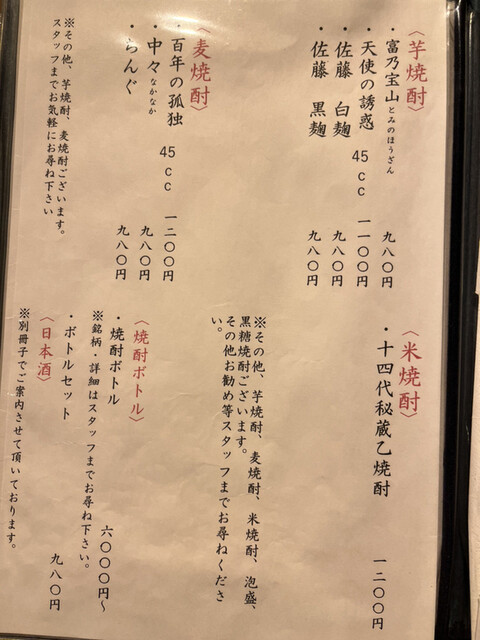 〈芋焼酎〉
・富乃宝山 とみのほうざん 九八〇円
・天使の誘惑 45cc 一一〇〇円
・佐藤 白麹 九八〇円
・佐藤 黒麹 九八〇円
〈麦焼酎〉
・百年の孤独 45cc 一二〇〇円
・中々 なかなか 九八〇円
・らんぐ 九八〇円
※その他、芋焼酎、麦焼酎ございます。
スタッフまでお気軽にお尋ね下さい
〈米焼酎〉
・十四代秘蔵乙焼酎 一二〇〇円
※その他、芋焼酎、麦焼酎、米焼酎、泡盛、
黒糖焼酎ございます。
その他お勧め等スタッフまでお尋ねくださ
い。
〈焼酎ボトル〉
・焼酎ボトル 六〇〇〇円~
※銘柄・詳細はスタッフまでお尋ね下さい。
・ボトルセット 九八〇円
〈日本酒〉
※別冊子でご案内させて頂いております。